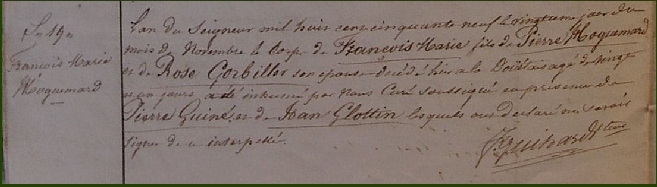 François Marie
Moquemard
L'an du Seigneur mil huit cent cinquante neuf le vingtième jour du
mois de Novembre le corps de François Marie fils de Pierre Moquemard
et de Rose Gorbiller son épouse décédé hier à la agé de vingt
un jours a été inhumé par nous Curé soussigné en presence de
Pierre Guiné, et de Jean Glottin lesquels ont declaré ne savoir
signer de ce interpellé.
Guihard